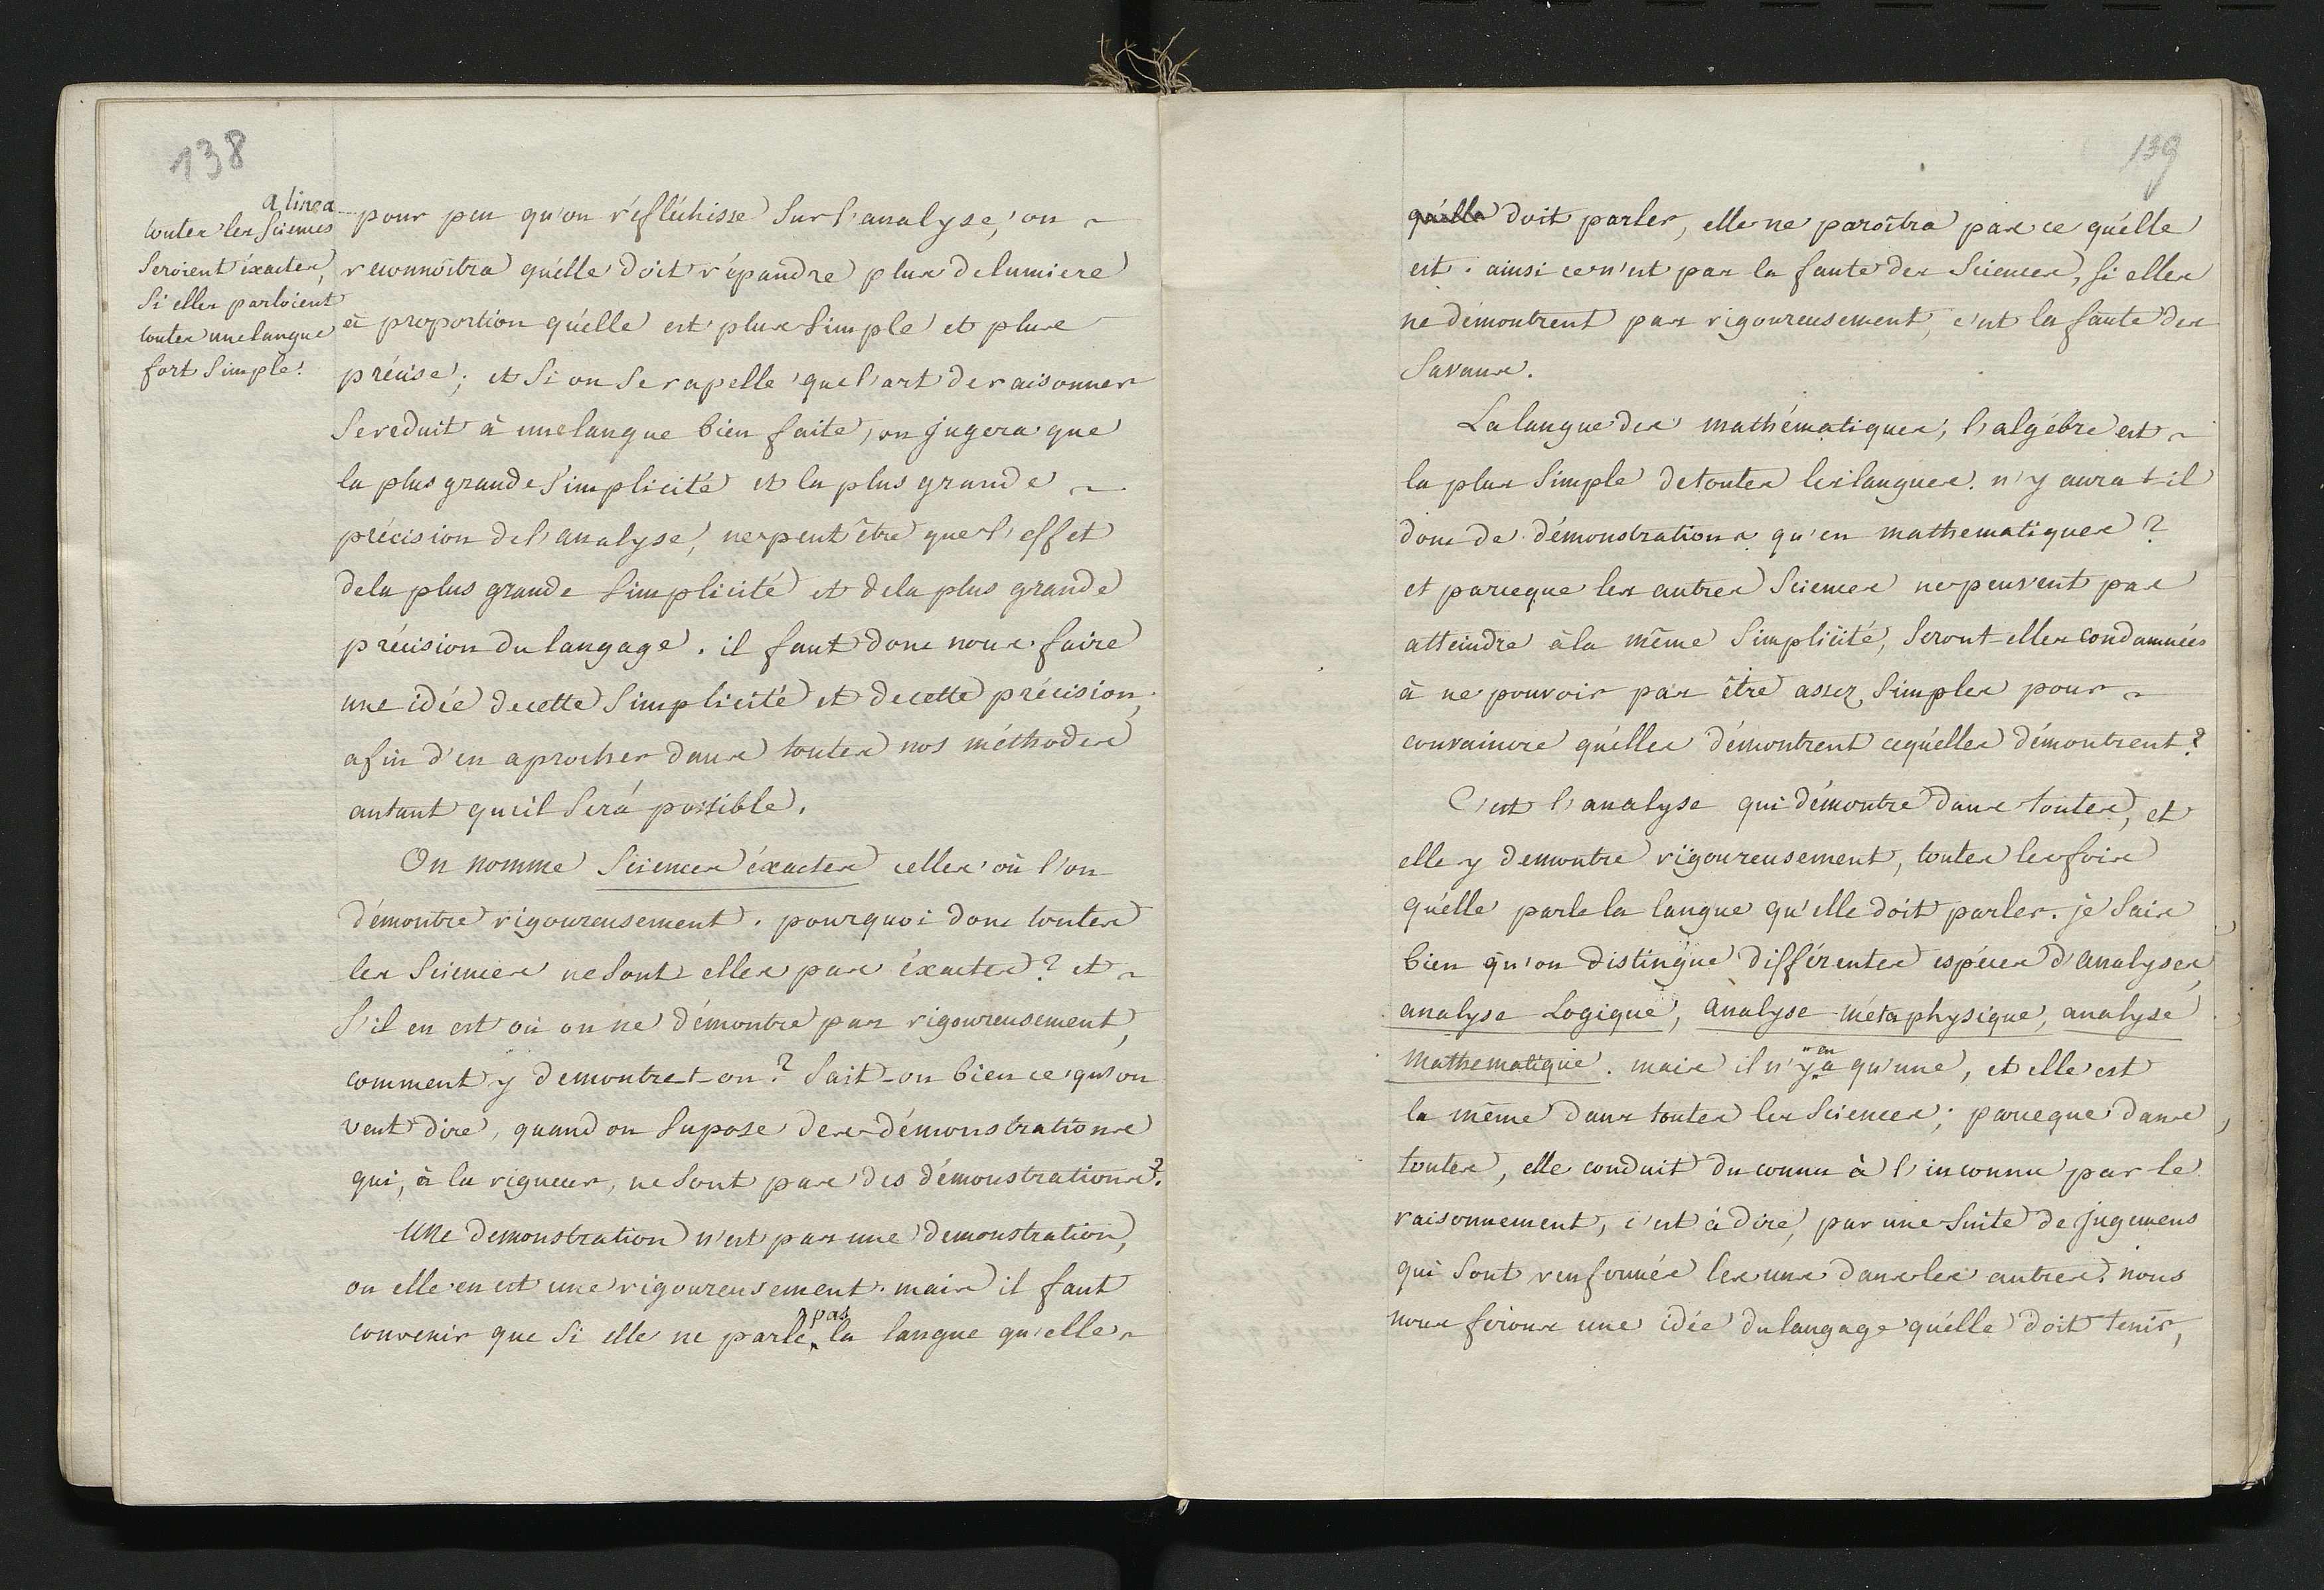 138
a linea
toutes les sciences
seroient éxactes,
si elles parloient
toutes une langue
fort simple.
pour peu qu'on réfléchisse sur l'analyse, on
reconnoîtra qu'elle doit répandre plus de lumiere
à proportion qu'elle est plus simple et plus
précise; et si on se rapelle que l'art de raisonner
se reduit à une langue bien faite, on jugera que
la plus grande simplicité et la plus grande
précision de l'analyse, ne peut être que l'effet
de la plus grande simplicité et de la plus grande
précision du langage. il faut donc nous faire
une idée de cette simplicité et de cette précision,
afin d'en aprocher dans toutes nos méthodes
autant qu'il sera possible.
On nomme sciences éxactes celles où l'on
démontre rigoureusement. pourquoi donc toutes
les sciences ne sont elles pas éxactes? et
s'il en est où on ne démontre pas rigoureusement,
comment y demontre-t-on? sait-on bien ce qu'on
veut dire, quand on supose des démonstrations
qui, à la rigueur, ne sont pas des démonstrations?
Une demonstration n'est pas une demonstration,
ou elle en est une rigoureusement. mais il faut
convenir que si elle ne parle pas la langue qu'elle
139
qu'elle doit parler, elle ne paroîtra pas ce qu'elle
est. ainsi ce n'est pas la faute des sciences, si elles
ne démontrent pas rigoureusement, c'est la faute des
savans.
La langue des mathématiques, l'algébre est
la plus simple de toutes les langues. n'y aura t-il
donc de démonstrations qu'en mathematiques?
et parceque les autres sciences ne peuvent pas
atteindre à la même simplicité, seront-elles condamnées
à ne pouvoir pas être assez simples pour
convaincre qu'elles démontrent ce qu'elles démontrent?
C'est l'analyse qui démontre dans toutes, et
elle y demontre rigoureusement, toutes les fois
qu'elle parle la langue qu'elle doit parler. je sais
bien qu'on distingue différentes espéces d'analyses,
analyse Logique, analyse métaphysique, analyse
mathematique. mais il n'y en a qu'une, et elle est
la même dans toutes les sciences; parceque dans
toutes, elle conduit du connu à l'inconnu par le
raisonnement, c'est à dire, par une suite de jugemens
qui sont renfermés les uns dans les autres. nous
nous ferons une idée du langage qu'elle doit tenir,